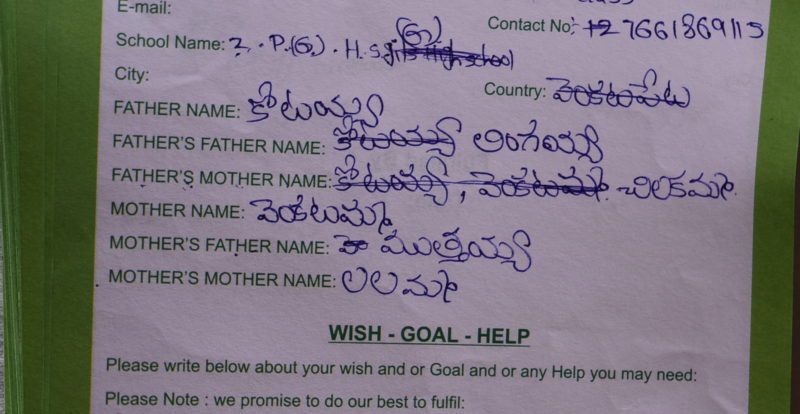 E-mail:
Contact No: +27661869115
School Name: Z.P.(G).H.S (G)
City:
Country: వెంకటాపేట
FATHER NAME: కోటయ్య
FATHER'S FATHER NAME: కోటయ్య లింగయ్య
FATHER'S MOTHER NAME: కోటయ్య, వెంకటమ్మ. చిలకమ్మ.
MOTHER NAME: వెంకటమ్మ
MOTHER'S FATHER NAME: ముత్తయ్య
MOTHER'S MOTHER NAME: లలమ్మ
WISH - GOAL - HELP
Please write below about your wish and or Goal and or any Help you may need:
Please Note : we promise to do our best to fulfil: